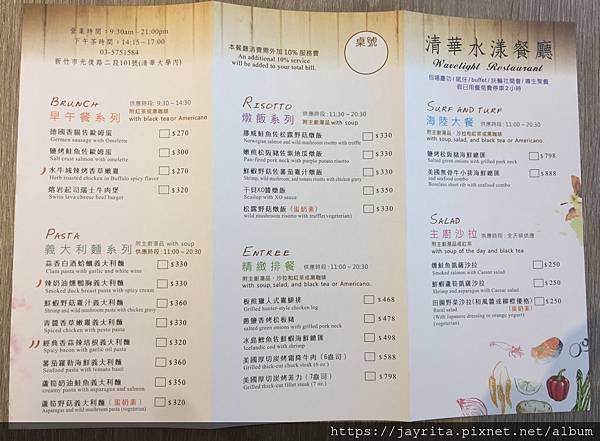 營業時間：9:30am~21:00pm
下午茶時間：14:15~17:00
03-5751584
新竹市光復路二段101號(清華大學內)
BRUNCH
早午餐系列
供應時段: 9:30~14:30
附紅茶或黑咖啡
with black tea or Americano
德國香腸佐歐姆蛋 $270
German sausage with Omulette
鹽烤鮭魚佐歐姆蛋 $300
Salt crust salmon with omulette
水牛城辣烤香草嫩雞 $270
Herb roasted chicken in Buffalo spicy flavor
熔岩起司瑞士牛肉堡 $320
Swiss lava cheese beef burger
PASTA
義大利麵系列
附主廚湯品 with soup
供應時段:11:00~20:30
蒜香白酒蛤蠣義大利麵 $330
Clam pasta with garlic and white wine
辣奶油燻鴨胸義大利麵 $350
Smoked duck breast pasta with spicy cream
鮮蝦野菇雞汁義大利麵 $360
Shrimp and wild mushroom pasta with chicken gravy
青醬香草嫩雞義大利麵 $330
Spiced chicken with pesto pasta
經典香蒜辣培根義大利麵 $320
Spicy bacon with garlic oil pasta
蕃茄羅勒海鮮義大利麵 $360
Seafood pasta with tomato basil
蘆筍奶油鮭魚義大利麵 $350
creamy pasta with asparagus and salmon
蘆筍野菇義大利麵(蛋奶素) $320
Asparagus and wild mushroom pasta (vegetarian)
本餐廳消費需外加10%服務費
An additional 10% service
will be added to your total bill.
桌號
RISOTTO
燉飯系列
供應時段: 11:00~20:30
附主廚湯品 with soup
挪威鮭魚佐松露野菇燉飯 $330
Norwegian salmon and wild mushroom risotto with truffle
嫩煎松阪豬佐紫地瓜燉飯 $330
Pan-fired pork neck with purple potato risotto
鮮蝦野菇佐蕃茄雞汁燉飯 $350
Shrimp, wild mushroom, and tomato risotto with chicken gravy
干貝XO醬燉飯 $350
Scallop with XO sauce
松露野菇燉飯(蛋奶素) $330
wild mushroom risotto with truffle(vegetarian)
ENTREE
精緻排餐
供應時段: 11:00~20:30
附主廚湯品、沙拉和紅茶或黑咖啡
with soup, salad, and black tea or Americano.
板煎獵人式雞腿排 $468
Grilled hunter-style chicken leg
蔥鹽香烤松板豬 $478
salted green onions with grilled pork neck
冰島鱈魚佐鮮蝦海鮮總匯 $498
Icelandic cod with shrimp
美國厚切炭烤霜降牛肉(6盎司) $588
Grilled thick-cut chuck steak (6 oz.)
美國厚切炭烤菲力(7盎司) $798
Grilled thick-cut fillet steak (7 oz.)
清華水漾餐廳
Wavelight Restaurant
包場慶功/尾牙/buffet/扶輪社開會/專生聚餐
假日用餐免費停車2小時
SURF AND TURF
海陸大餐
供應時段: 11:30~20:30
附主廚湯品、沙拉和紅茶或黑咖啡
with soup, salad, and black tea or Americano.
鹽烤松阪豬海鮮總匯 $798
Salted green onions with grilled pork neck
美國無骨牛小排海鮮總匯 $898
and seafood combo
Boneless short rib with seafood combo
SALAD
主廚沙拉
供應時段: 全天候供應
附主廚湯品或紅茶
with soup of the day and black tea
燻鮭魚凱薩沙拉 $250
Smoked salmon with Caesar salad
鮮蝦蘆筍凱薩沙拉 $250
Shrimp and asparagus with Caesar salad
田園野菜沙拉(和風醬或柳橙優格) $250
Rural salad (蛋奶素)
(with Japanese dressing or orange yogurt)
(vegetarian)
https://jayrita.pixnet.net/album